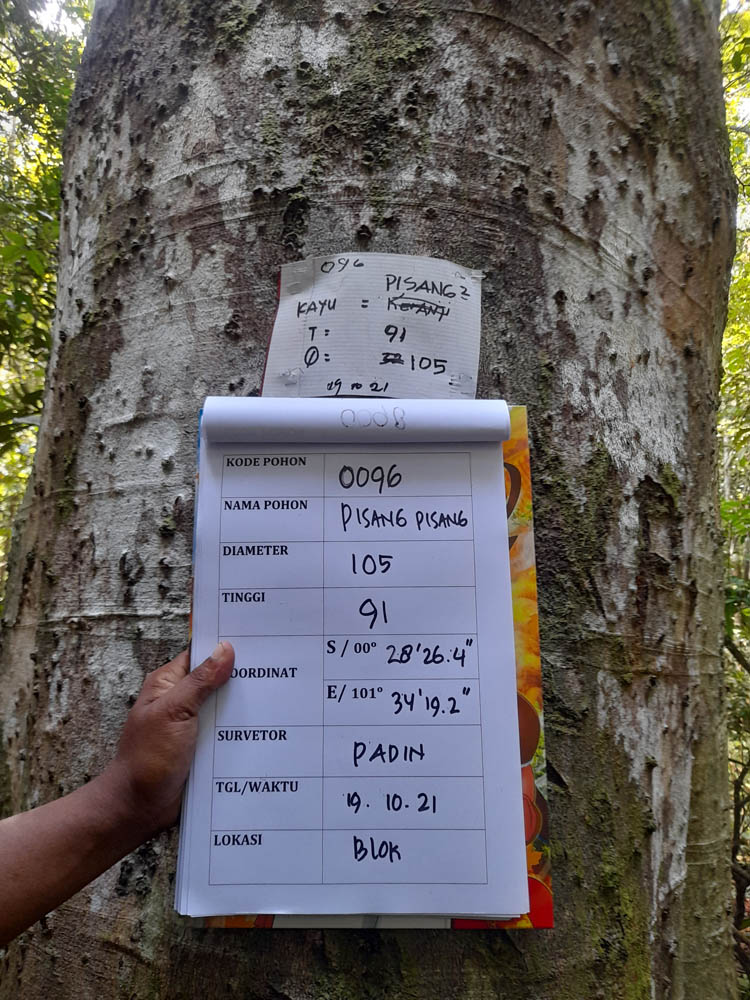 096
PISANG2
KAYU = KERANJI
T: 91
Ø: 32 105
19 10 21
0098
KODE POHON 0096
NAMA POHON PISANG PISANG
DIAMETER 105
TINGGI 91
OORDINAT S / 00° 28'26.4"
E/ 101° 34'19.2"
SURVETOR PADIN
TGL/WAKTU 19. 10. 21
LOKASI BLOK